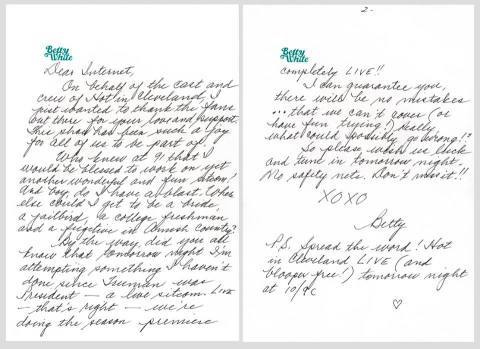 Betty
White
Dear Internet,
On behalf of the cast and
crew of Hot in Cleveland, I
just wanted to thank the fans
out there for your love and support.
This show has been such a joy
for all of us to be part of.
Who knew at 91 that I
would be blessed to work on yet
another wonderful and fun sitcom!
And boy, do I have a blast. Where
else could I get to be a bride,
a jailbird, a college freshman,
and a fugitive in Amish Country?
By the way, did you all
know that tomorrow night I'm
attempting something I haven't
done since Truman was
President — a live sitcom. LIVE
— that's right — we're
doing the season premiere
2-
Betty
White
completely LIVE!!
I can guarantee you,
there will be no mistakes
...that we can't cover (or
have fun trying!) Really
what could possibly go wrong!?
So please wish us luck
and tune in tomorrow night.
No safety nets. Don't miss it!!
XOXO
Betty
P.S. Spread the word! Hot
in Cleveland LIVE (and
blooper free!) tomorrow night
at 10/9c